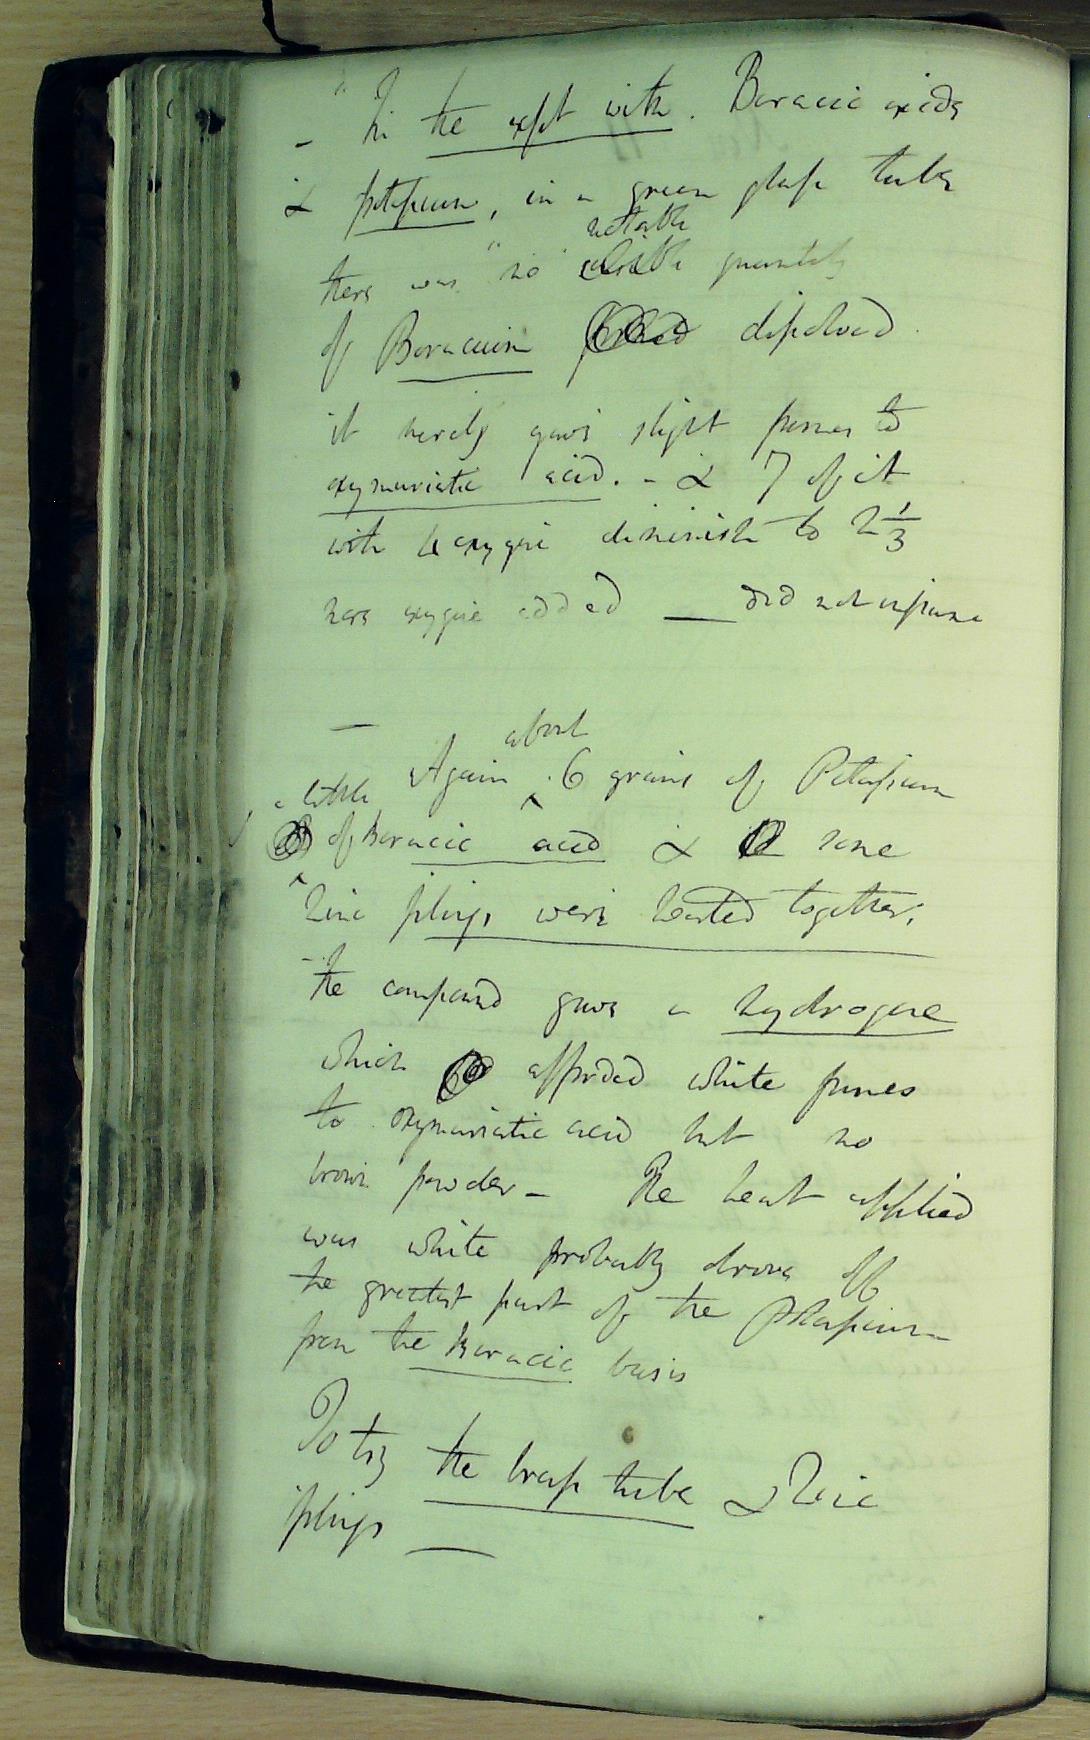 - In the expt with. Boracic oxide
& potassium, in a green glass tube
notable
there was "no quantity
of Boracium dissolved
it merely gave slight fumes to
oxymuriatic acid. - & 7 of it
with 4 oxygene diminish to 2 1/3
more oxygene added — did not inflame
— about
Again 6 grains of Potassium
a little
of boracic acid & some
Zinc filings were heated together;
- the compound gave a hydrogene
which afforded white fumes
to oxymuriatic acid but no
brown powder - The heat applied
was white probably drove off
the greatest part of the Potassium
from the Boracic basis
To try the brass tube & Zinc
filings —